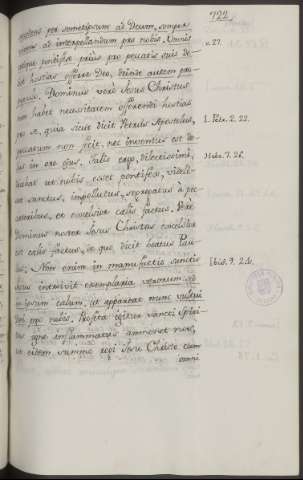 722.
accedens per semetipsum ad Deum, semper
vivens ad interpellandum pro nobis. Omnis
v. 27.
pontifex prius pro peccatis suis de-
bet hostias offerre Deo, deinde autem pro
populi. Dominus verò Jesus Christus
non habet necessitatem offerendi hostias
pro se, quia sicut dicit Petrus Apostolus,
I. Petr. 2. 22.
peccatum non fecit, nec inventus est do-
lus in ore ejus. Talis ergo, dilectissimi,
Hebr. 7. 26.
debebat ut nobis esset pontifex, videli-
cet sanctus, impollutus, segregatus à pec-
catoribus, et excelsior caelis factus. Verè
Dominus noster Jesus Christus excelsior
est caelis factus, de quo dicit beatus Pau-
lus: Non enim in manufactis sanctis
Ibid. 9. 24.
Jesus introivit exemplaria verorum, sed
in ipsum caelum, ut appareat nunc vultui
Dei pro nobis. Profeta igitur sancti Spiri-
tus igne inflammatus admonet nos,
ut eidem summo regi Jesu Christo cum
omni